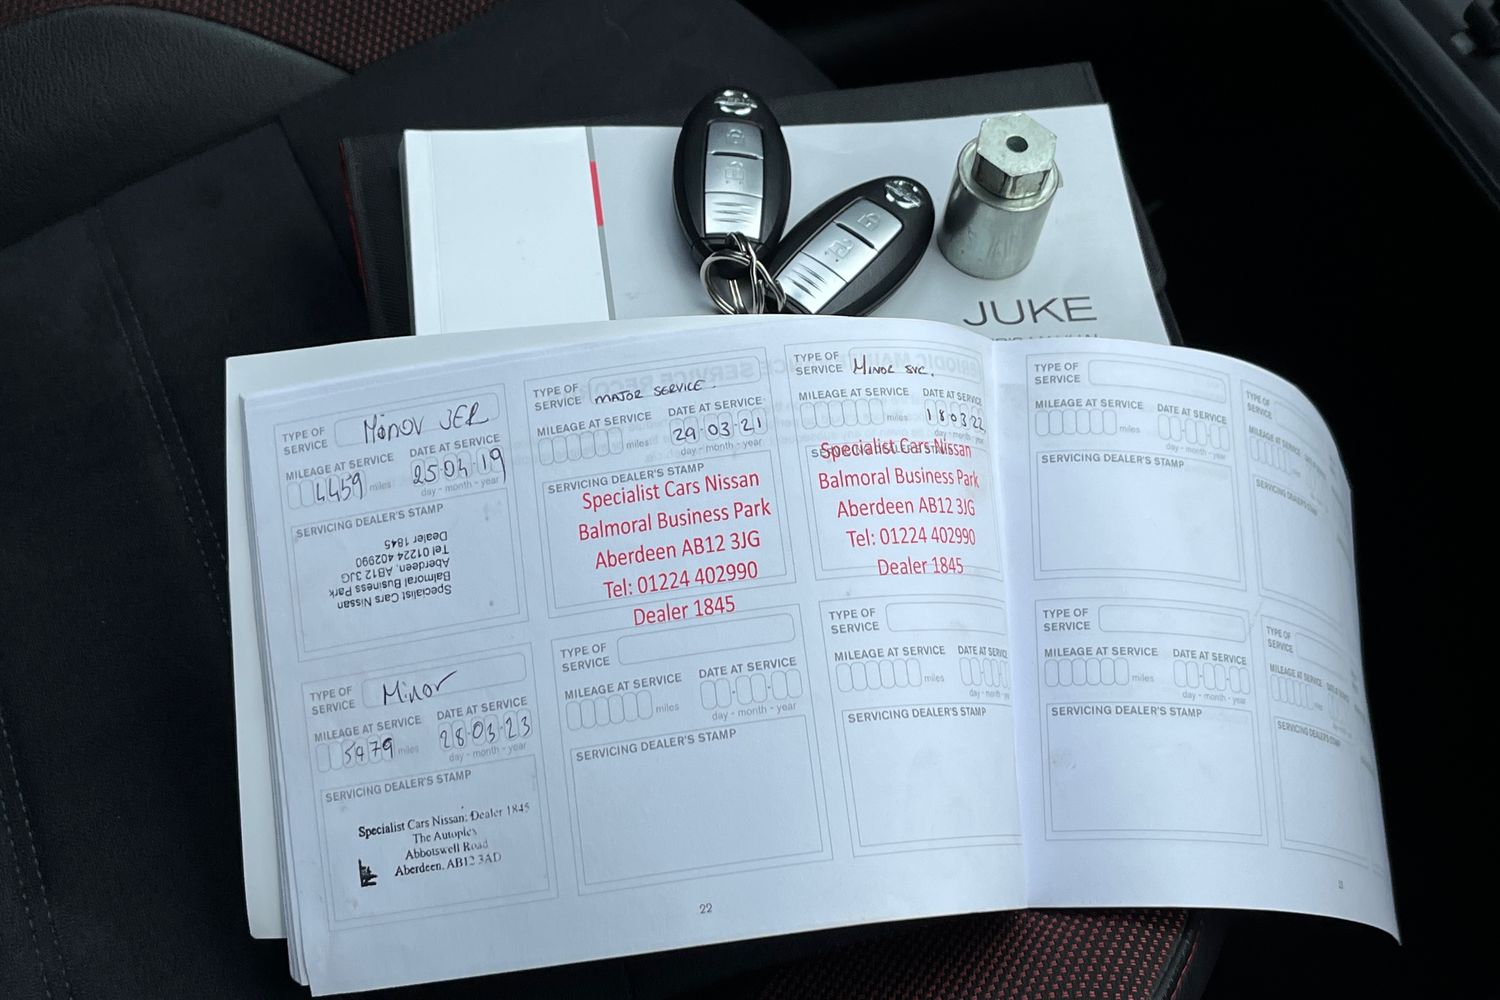 JUKE
TYPE OF
SERVICE
Minor SER
MILEAGE AT SERVICE
4459 miles
DATE AT SERVICE
25-03-19
day - month - year
SERVICING DEALER'S STAMP
Specialist Cars Nissan
Balmoral Business Park
Aberdeen, AB12 3JG
Tel 01224 402990
Dealer 1845
TYPE OF
SERVICE
MAJOR SERVICE.
MILEAGE AT SERVICE
miles
DATE AT SERVICE
29-03-21
day - month - year
SERVICING DEALER'S STAMP
Specialist Cars Nissan
Balmoral Business Park
Aberdeen AB12 3JG
Tel: 01224 402990
Dealer 1845
TYPE OF
SERVICE
MINOR SVC.
MILEAGE AT SERVICE
miles
DATE AT SERVICE
18-03-22
day - month - year
Specialist Cars Nissan
Balmoral Business Park
Aberdeen AB12 3JG
Tel: 01224 402990
Dealer 1845
TYPE OF
SERVICE
MILEAGE AT SERVICE
miles
DATE AT SERVICE
day - month - year
SERVICING DEALER'S STAMP
TYPE OF
SERVICE
MILEAGE AT SERVICE
TYPE OF
SERVICE
Minor
MILEAGE AT SERVICE
5479 miles
DATE AT SERVICE
28-03-23
day - month - year
SERVICING DEALER'S STAMP
Specialist Cars Nissan: Dealer 1845
The Autoplex
Abbotswell Road
Aberdeen. AB12 3AD
TYPE OF
SERVICE
MILEAGE AT SERVICE
miles
DATE AT SERVICE
day - month - year
SERVICING DEALER'S STAMP
TYPE OF
SERVICE
MILEAGE AT SERVICE
miles
DATE AT SERVICE
SERVICING DEALER'S STAMP
TYPE OF
SERVICE
MILEAGE AT SERVICE
miles
DATE AT SERVICE
day - month - year
SERVICING DEALER'S STAMP
TYPE OF
SERVICE
MILEAGE AT SERVICE
SERVICING DEALER'S STAMP
22